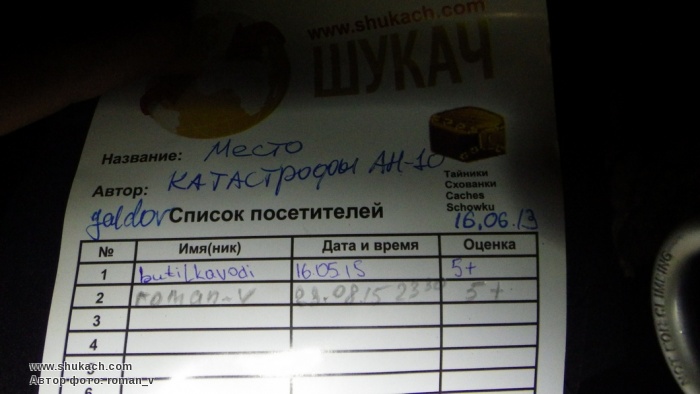 www.shukach.com
ШУКАЧ
Название: Место
Катастрофы АН-10
Автор:
galdor
Тайники
Схованки
Caches
Schowku
Список посетителей
16.06.13
№ Имя(ник) Дата и время Оценка
1 butilkavodi 16 05 15 5+
2 roman-v 29.08.15 23 30 5+
3
4
5
6
NOT FOR CLIMBING
www.shukach.com
Автор фото: roman_v